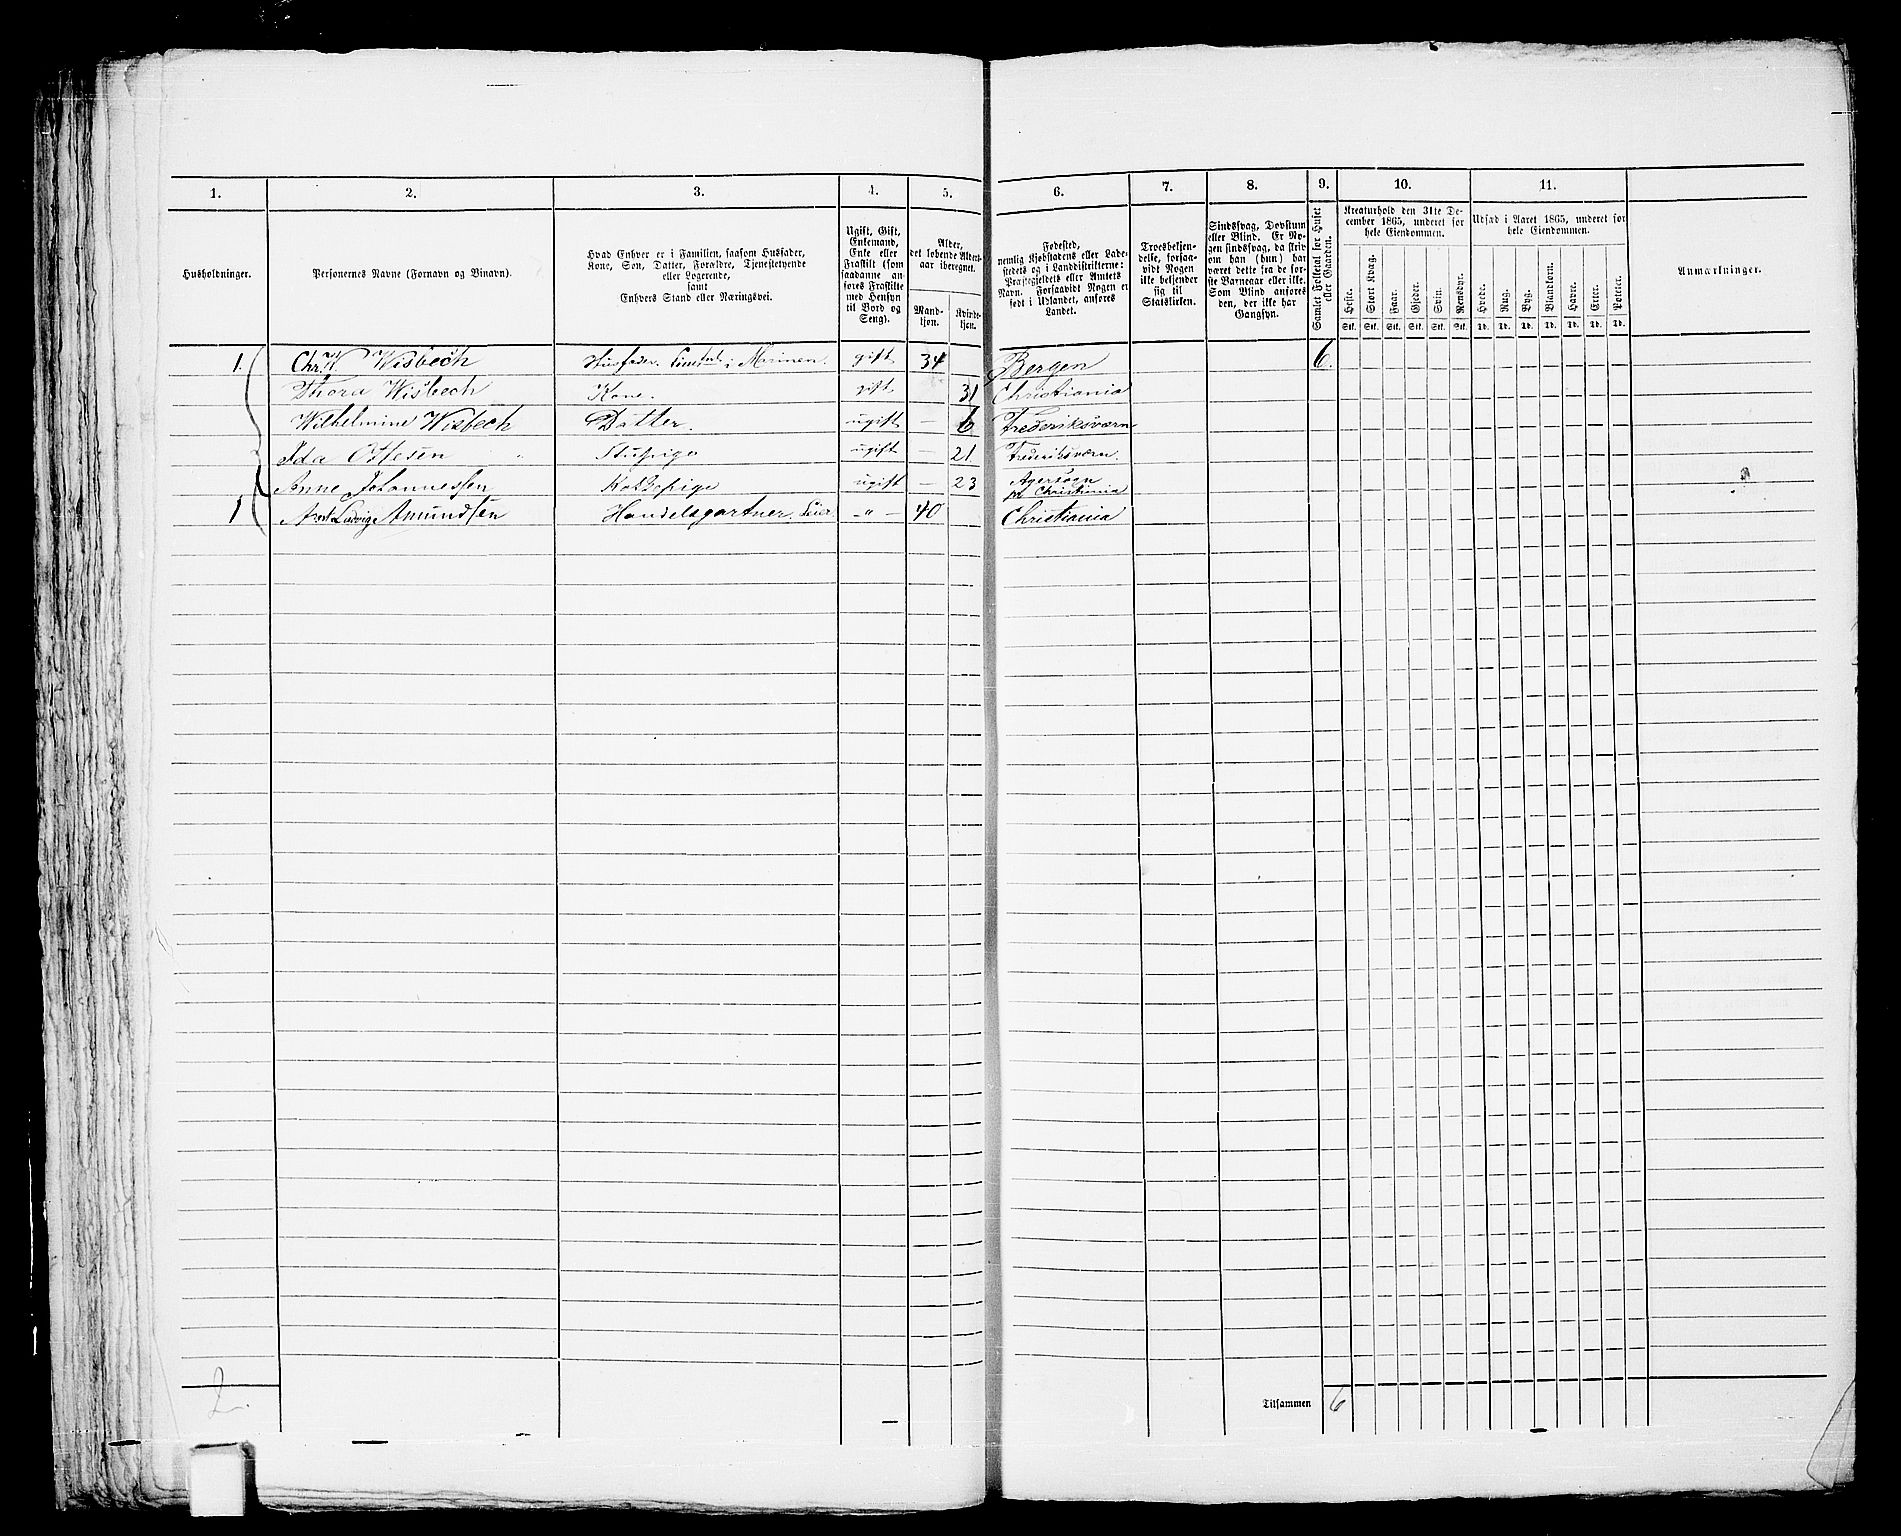 1. 2. 3. 4. 5. 6. 7. 8. 9. 10. 11.
Husholdninger.
Personernes Navne (Fornavn og Binavn).
Hvad Enhver er i Familien, saasom Husfader,
Kone, Søn, Datter, Forældre, Tjenestetyende
eller Logerende,
samt
Enhvers Stand eller Næringsvei.
Ugift, Gift,
Enkemand,
Enke eller
Fraskilt (som
saadanne an-
føres Fraskilte
med Hensyn
til Bord og
Seng).
Alder,
det løbende Alders-
aar iberegnet.
Mand-
kjøn.
Kvinde-
kjøn.
Fødested,
nemlig Kjøbstadens eller Lade-
stedets og i Landdistrikterne:
Præstegjeldets eller Amtets
Navn. Forsaavidt Nogen er
født i Udlandet, anføres
Landet.
Troesbekjen-
delse, forsaa-
vidt Nogen
ikke bekjender
sig til
Statskirken.
Sindssvag, Døvstum
eller Blind. Er No-
gen sindssvag, da skriv
om han (hun) har
været dette fra de før-
ste Barneaar eller ikke.
Som Blind anføres
den, der ikke har
Gangsyn.
Samlet Folketal for Huset
eller Gaarden.
Kreaturhold den 31te De-
cember 1865, underet for
hele Eiendommen.
Heste. Stort Kvæg. Faar. Gjeder. Svin. Rensdyr.
Stk. Stk. Stk. Stk. Stk. Stk.
Udsæd i Aaret 1865, underet for
hele Eiendommen.
Hvede. Rug. Byg. Blandkorn. Havre. Erter. Poteter.
Td. Td. Td. Td. Td. Td. Td.
Anmærkninger.
1. Chr. W. Wisbech Husfader. i Marinen. gift 34 Bergen 6.
Thora Wisbech Kone. gift 31 Christiania
Wilhelmine Wisbech Datter. ugift — 6 Frederiksværn
Ida Ottesen Stuepige ugift — 21 Frederiksværn.
Anne Johannessen Kokkepige ugift — 23 Agersogn
Christiania
1 Ludvig Amundsen Handelsgartner. -"- 40 Christiania
2.
Tilsammen 6